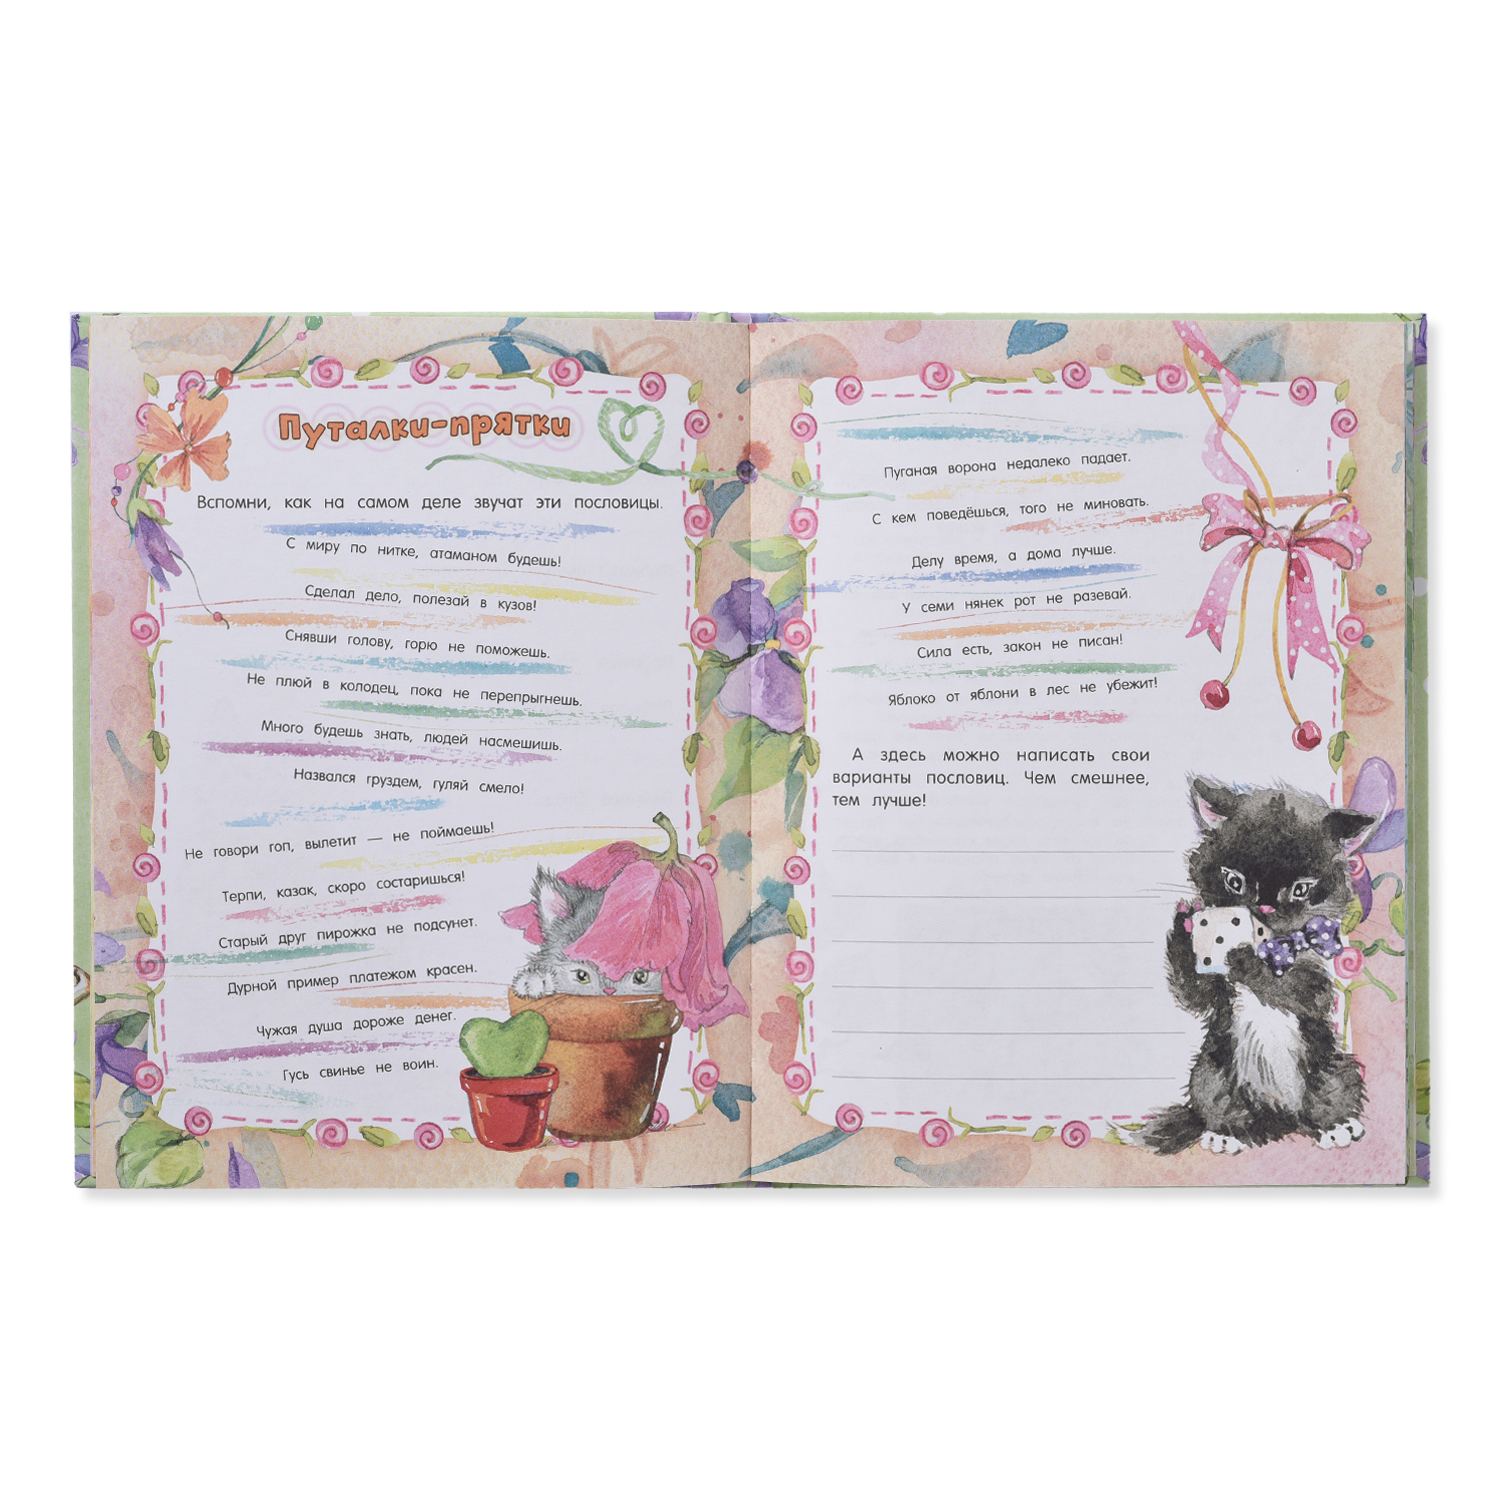 Путалки-прятки
Вспомни, как на самом деле звучат эти пословицы.
С миру по нитке, атаманом будешь!
Сделал дело, полезай в кузов!
Снявши голову, горю не поможешь.
Не плюй в колодец, пока не перепрыгнешь.
Много будешь знать, людей насмешишь.
Назвался груздем, гуляй смело!
Не говори гоп, вылетит — не поймаешь!
Терпи, казак, скоро состаришься!
Старый друг пирожка не подсунет.
Дурной пример платежом красен.
Чужая душа дороже денег.
Гусь свинье не воин.
Пуганая ворона недалеко падает.
С кем поведёшься, того не миновать.
Делу время, а дома лучше.
У семи нянек рот не разевай.
Сила есть, закон не писан!
Яблоко от яблони в лес не убежит!
А здесь можно написать свои
варианты пословиц. Чем смешнее,
тем лучше!